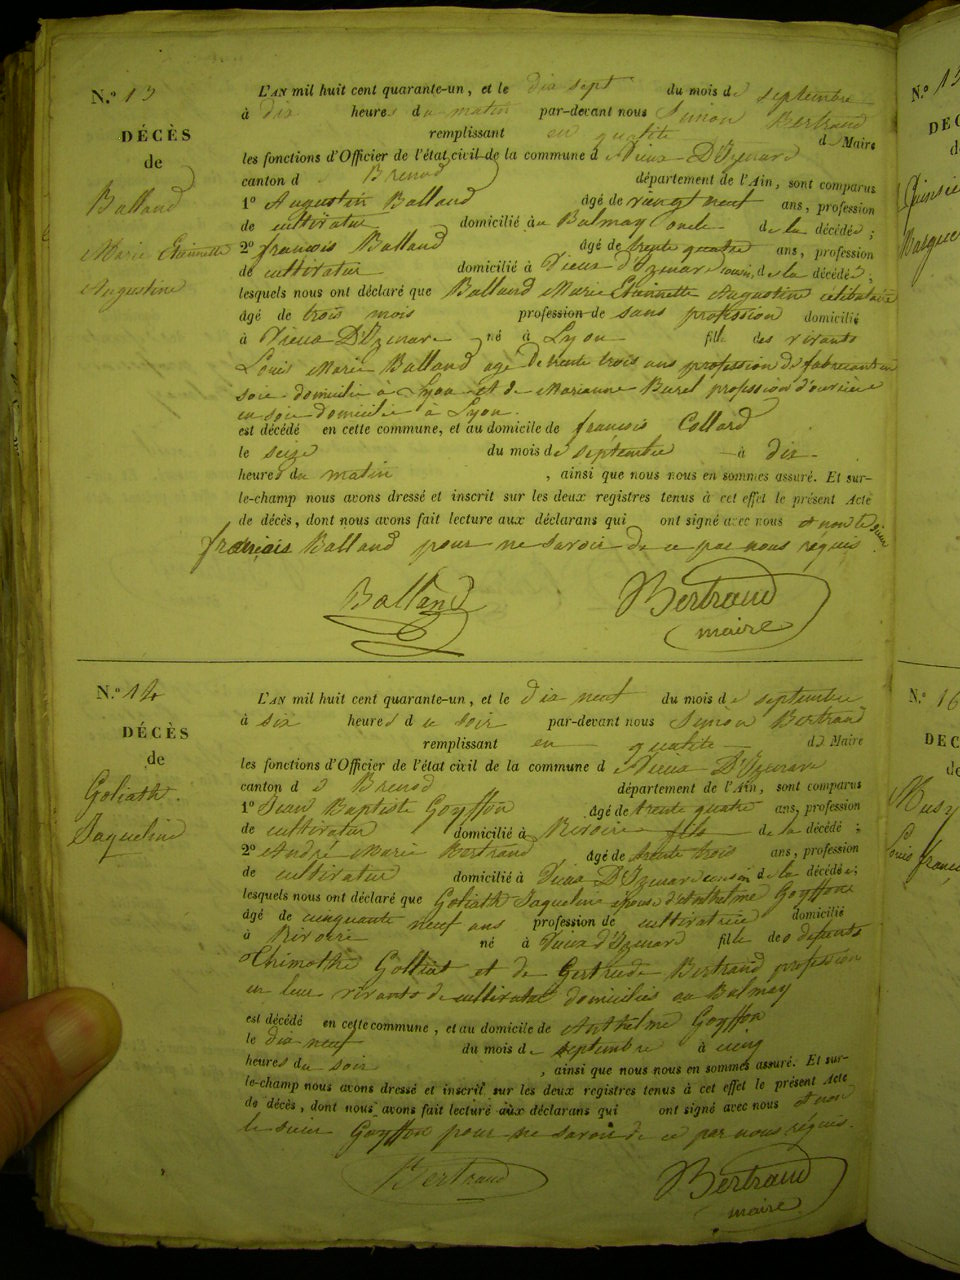 N.º 13
DÉCÈS
de
Balland
Marie Etiennette
Augustine
L'AN mil huit cent quarante-un, et le dix sept du mois de septembre
à dix heures du matin par-devant nous Simon Bertrand
remplissant en qualité d Maire
les fonctions d'Officier de l'état civil de la commune d Vieux D'Izenave
canton d Brenod département de l'Ain, sont comparus
1º Augustin Balland âgé de vingt neuf ans, profession
de cultivateur domicilié à Balmay oncle de la décédée ;
2º françois Balland âgé de trente quatre ans, profession
de cultivateur domicilié à Vieux d'Izenave cousin, de la décédée ;
lesquels nous ont déclaré que Balland Marie Etiennette Augustine célibataire
âgé de trois mois profession de sans profession domicilié
à Vieux D'Izenave né à Lyon fille des vivants
Louis Marie Balland agé de trente trois ans profession de fabricant en
soie domicilié à Lyon et de Marianne Burel profession d'ouvrière
en soie domicilié à Lyon.
est décédé en cette commune, et au domicile de françois Collard
le seize du mois de septembre à dix
heures du matin , ainsi que nous nous en sommes assuré. Et sur-
le-champ nous avons dressé et inscrit sur les deux registres tenus à cet effet le présent Acte
de décès, dont nous avons fait lecture aux déclarans qui ont signé avec nous et non le sieur
françois Balland pour ne savoir de ce par nous réquis
Balland
Bertrand
maire
N.º 14
DÉCÈS
de
Goliath
Jaqueline
L'AN mil huit cent quarante-un, et le dix neuf du mois de septembre
à six heures du soir par-devant nous Simon Bertrand
remplissant en qualité d Maire
les fonctions d'Officier de l'état civil de la commune d Vieux D'Izenave
canton d Brenod département de l'Ain, sont comparus
1º Jean Baptiste Goyffon âgé de trente quatre ans, profession
de cultivateur domicilié à Rivoire fils de la décédée ;
2º André Marie Bertrand âgé de trente trois ans, profession
de cultivateur domicilié à Vieux D'Izenave cousin de la décédée ;
lesquels nous ont déclaré que Goliath Jaqueline épouse d'Anthelme Goyffon
âgé de cinquante neuf ans profession de cultivatrice domicilié
à Rivoire né à Vieux d'Izenave fille de defunts
Thimothé Golliat et de Gertrude Bertrand profession
en leur vivants de cultivateur domiciliés en Balmay
est décédé en cette commune, et au domicile de Anthelme Goyffon
le dix neuf du mois de septembre à cinq
heures du soir , ainsi que nous nous en sommes assuré. Et sur-
le-champ nous avons dressé et inscrit sur les deux registres tenus à cet effet le présent Acte
de décès, dont nous avons fait lecture aux déclarans qui ont signé avec nous et non
le sieur Goyffon pour ne savoir de ce par nous réquis.
Bertrand
Bertrand
maire
N.º 15
N.º 16
Musy